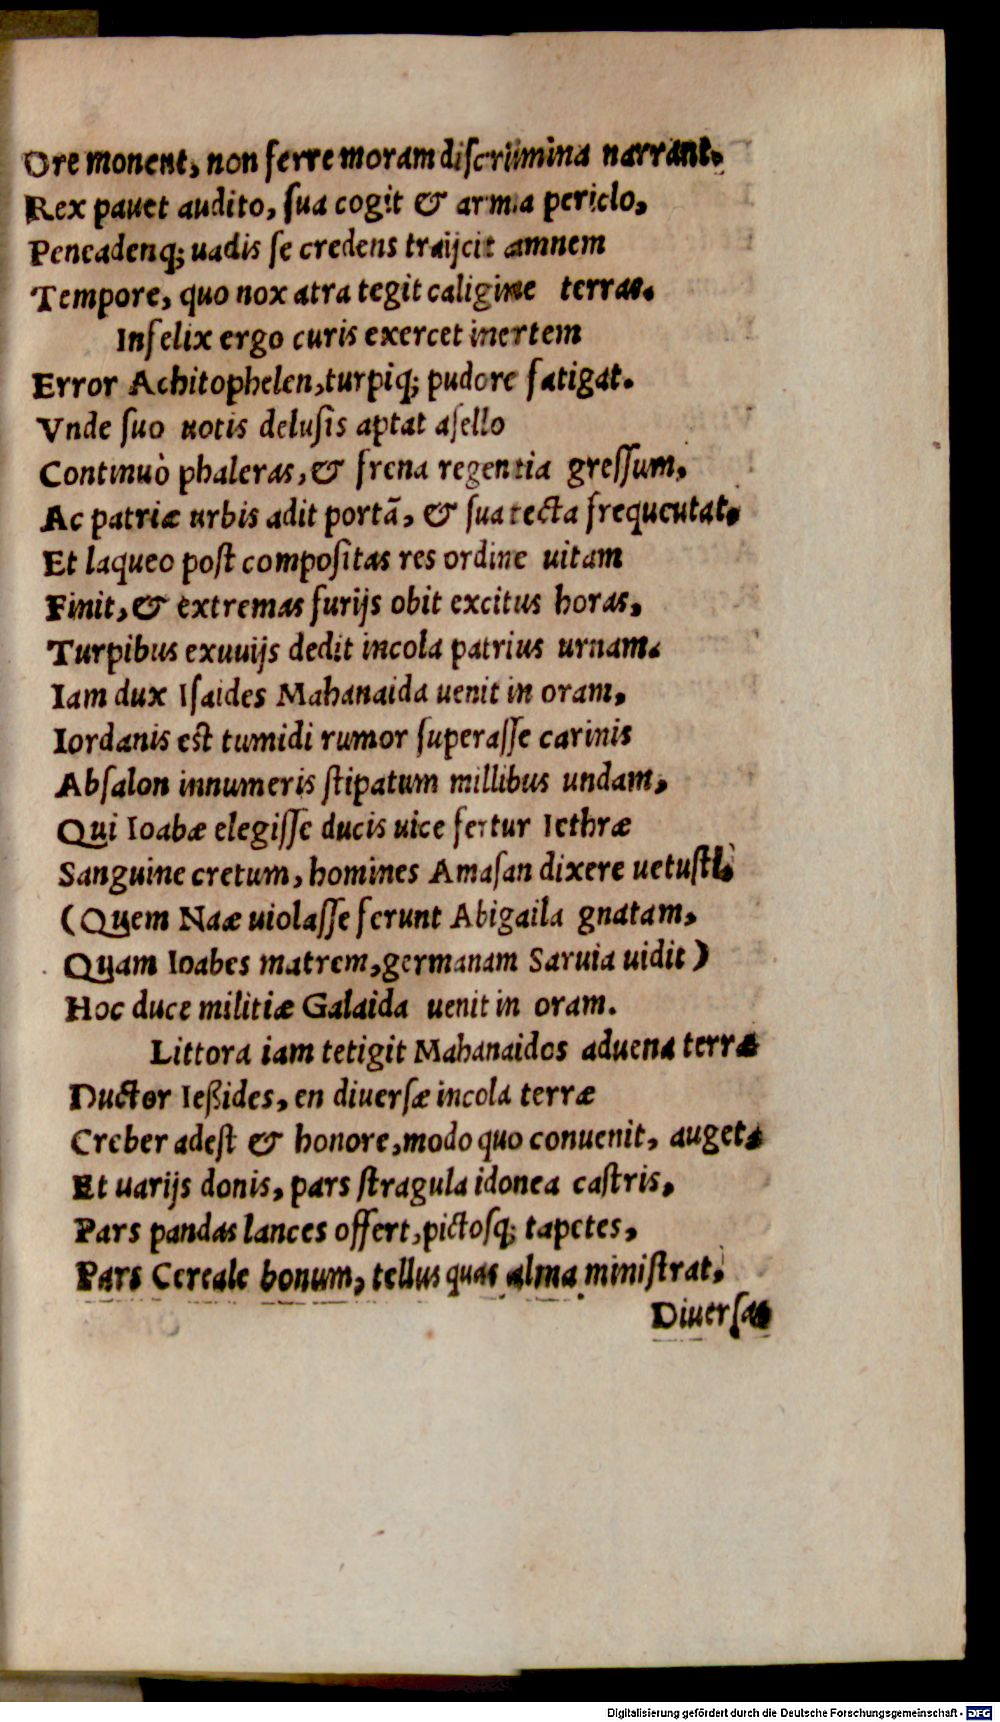 Ore monent, non ferre moram discrimina narrant.
Rex pauet audito, sua cogit & arma periclo,
Peneadenq; uadis se credens traijcit amnem
Tempore, quo nox atra tegit caligine terras.
Infelix ergo curis exercet inertem
Error Achitophelen, turpiq; pudore fatigat.
Vnde suo uotis delusis aptat asello
Continuò phaleras, & frena regentia gressum,
Ac patriæ urbis adit portã, & sua tecta frequentat,
Et laqueo post compositas res ordine uitam
Finit, & extremas furijs obit excitus horas,
Turpibus exuuijs dedit incola patrius urnam.
Iam dux Isaides Mahanaida uenit in oram,
Iordanis est tumidi rumor superasse carinis
Absalon innumeris stipatum millibus undam,
Qui Ioabæ elegisse ducis uice fertur Iethræ
Sanguine cretum, homines Amasan dixere uetusti,
(Quem Naæ uiolasse ferunt Abigaila gnatam,
Quam Ioabes matrem, germanam Saruia uidit)
Hoc duce militiæ Galaida uenit in oram.
Littora iam tetigit Mahanaidos aduena terræ
Ductor Ießides, en diuersæ incola terræ
Creber adest & honore, modo quo conuenit, auget,
Et uarijs donis, pars stragula idonea castris,
Pars pandas lances offert, pictosq; tapetes,
Pars Cereale bonum, tellus quas alma ministrat,
Diuersas
Digitalisierung gefördert durch die Deutsche Forschungsgemeinschaft - DFG